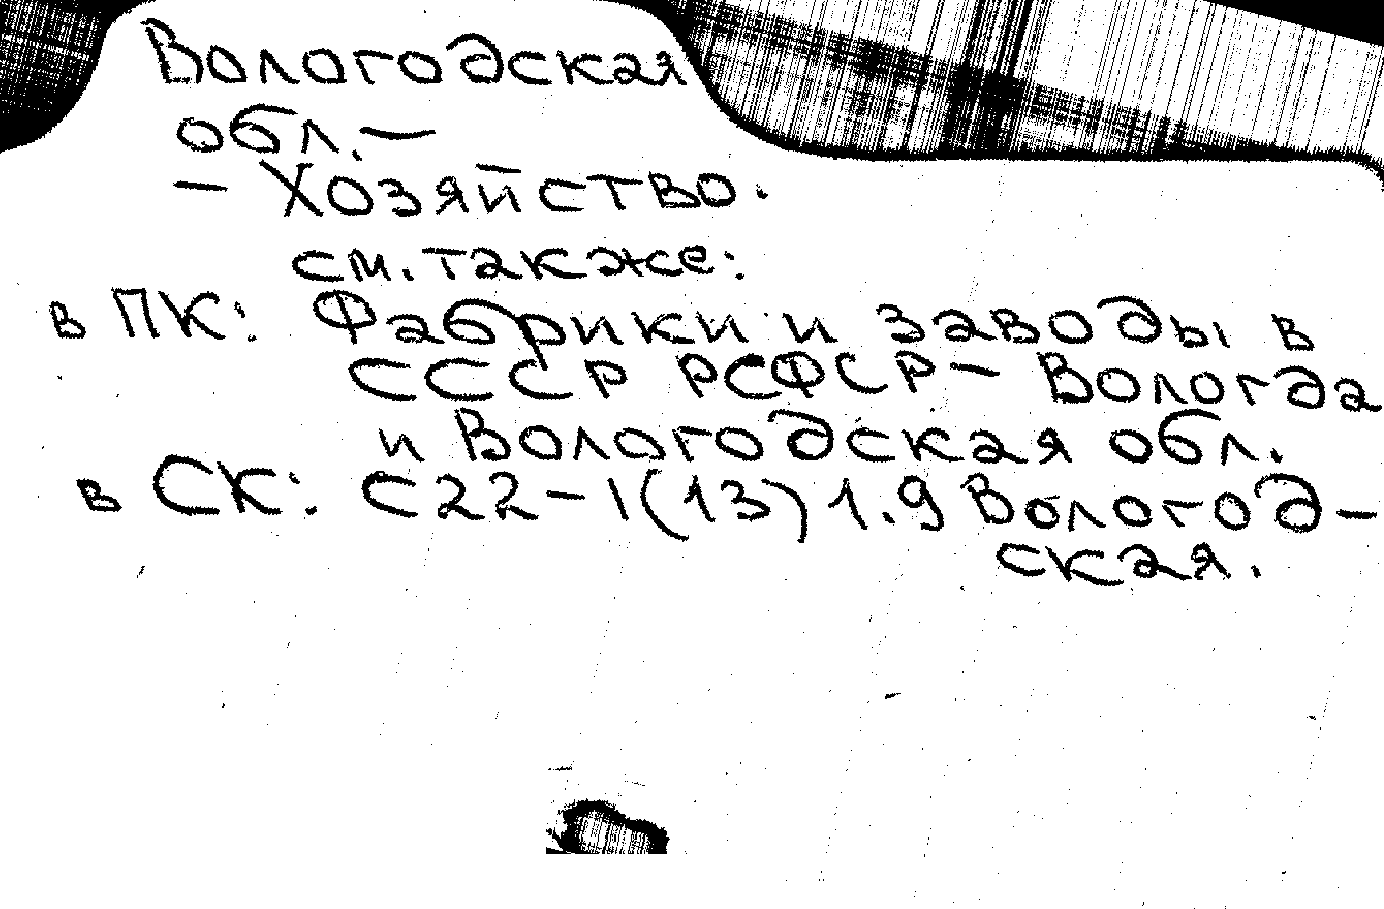 Вологодская
обл.—
— Хозяйство.
см. также:
в ПК: Фабрики и заводы в
СССР РСФСР — Вологда
и Вологодская обл.
в СК: С22-1(13)1.9 Вологод-
ская.